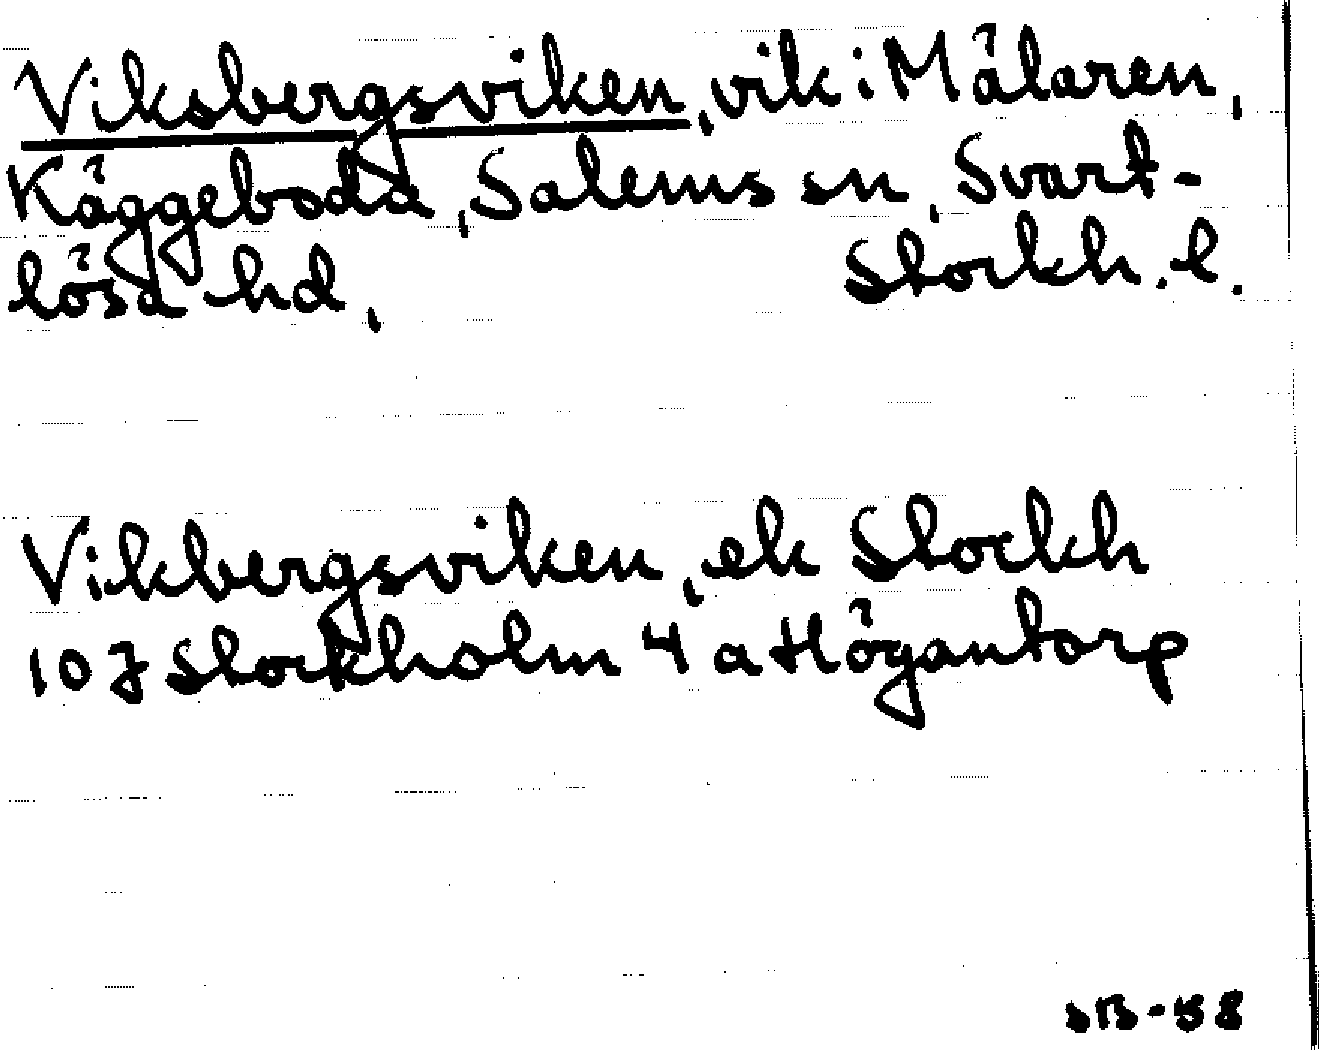 Viksbergsviken, vik i Mälaren,
Käggeboda, Salems sn, Svart-
lösa hd, Stockh. l.
Vikbergsviken, ek Stockh
10 J Stockholm 4 a Högantorp
SB-58